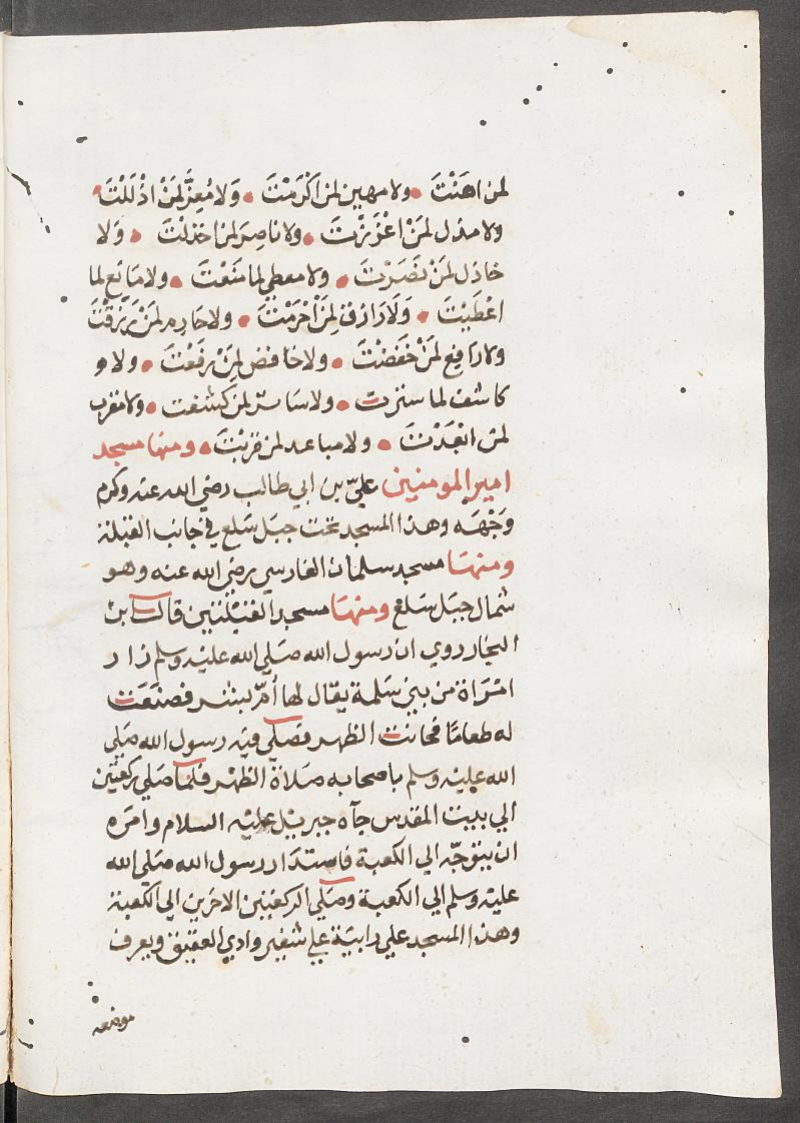 لمن اهَنْتَ ولا مهين لمن اكْرَمْتَ وَلا مُعِزَّ لِمَنْ اذْلَلْتَ
ولا مذل لمَنْ اعْزَزْتَ ولا ناصِرَ لمن اخذلْتَ وَلا
خاذل لمَنْ نصَرْتَ ولا معطي لما مَنَعْتَ ولا مَانِع لما
اعْطَيْتَ وَلَا رَازِق لِمَنْ احْرَمْتَ ولا حارم لمَنْ رَزَقْتَ
ولا رافِع لمَنْ خَفَضْتَ ولا خافض لمَنْ رفَعْتَ ولا و
كاشف لما سترت ولا ساتر لمن كشفت ولا مقرب
لمن ابْعَدْتَ ولا مباعد لمن قربْتَ ومنها مسجد
امير المومنين عليّ بن ابي طالب رضي الله عنه وكرم
وَجْهَه وهذا المسجد تحت جبَل سَلع في جانب القبلة
ومنهَا مسجد سلمان الفارسي رضي الله عنه وهو
شمال جبَل سَلع ومنهَا مسجد القبْلتين قالَ بن
النجار روي ان رسول الله صَلي الله عليه وسلم زار
امْرَاة من بني سَلمة يقال لها اُمّ بشر فصنَعَت
له طعامًا فحانت الظهر فصَلي فيه رسول الله صَلي
الله عليه وسلم باصحابه صَلاة الظهْر فلمَا صَلي ركعتين
الي بيت المقدس جآه جبريل عليه السلام وامَره
ان يتوَجّه الي الكعبة فاستدَار رسول الله صَلي الله
عليه وسلم الي الكعبة وصَلي الركعتين الاخرين الي الكعبة
وهذا المسجد علي رابيَة علي شفير وادي العقيق ويعرف
موضعه